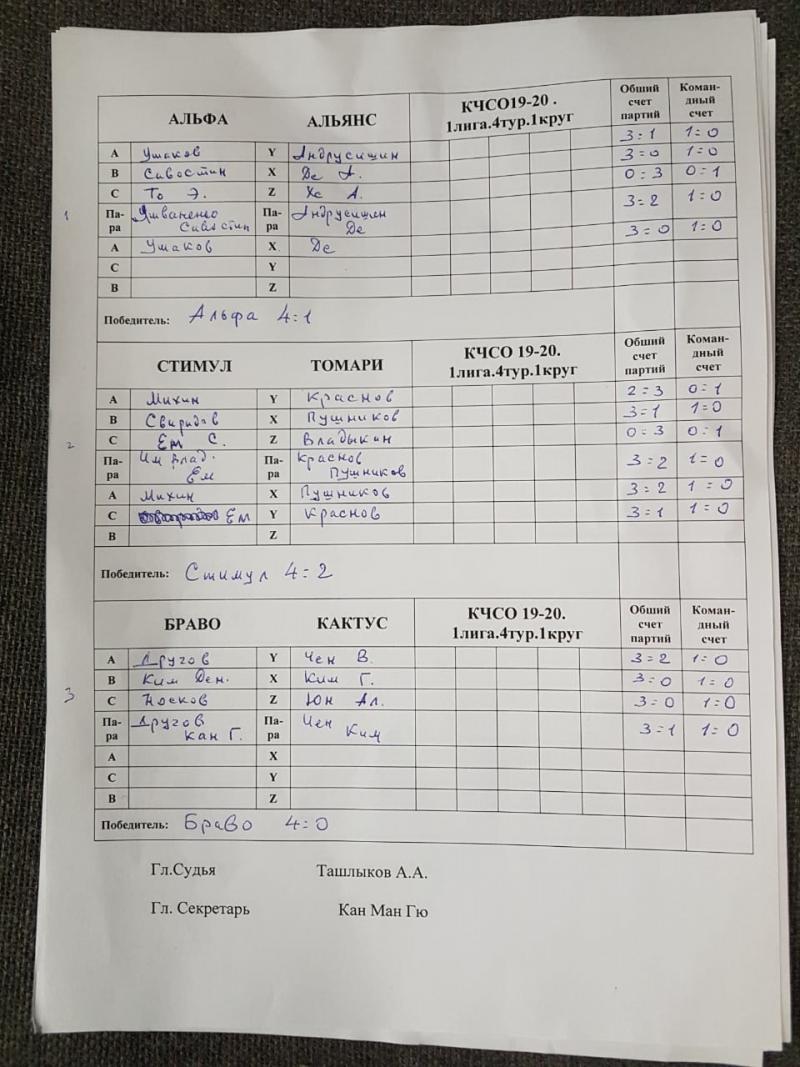 АЛЬФА АЛЬЯНС КЧСО19-20 . 1лига.4тур.1круг Общий счет партий Коман-дный счет
3=1 1=0
A Ушаков Y Андрусишин 3=0 1=0
B Савостин X Де А. 0=3 0=1
C То Э. Z Хе А.
1 Па-ра Савостин Па-ра Андрусишин Де 3=2 1=0
A Ушаков X Де 3=0 1=0
C Y
B Z
Победитель: Альфа 4=1
СТИМУЛ ТОМАРИ КЧСО 19-20. 1лига.4тур.1круг Общий счет партий Коман-дный счет
A Михин Y Краснов 2=3 0=1
B Свиридов X Пушников 3=1 1=0
2 C Ем С. Z Владыкин 0=3 0=1
Па-ра Им Влад. Ем Па-ра Краснов Пушников 3=2 1=0
A Михин X Пушников 3=2 1=0
C Ем Y Краснов 3=1 1=0
B Z
Победитель: Стимул 4=2
БРАВО КАКТУС КЧСО 19-20. 1лига.4тур.1круг Общий счет партий Коман-дный счет
A Другов Y Чен В. 3=2 1=0
B Ким Ден. X Ким Г. 3=0 1=0
3 C Носков Z Юн Ал. 3=0 1=0
Па-ра Другов Кан Г. Па-ра Чен Ким 3=1 1=0
A X
C Y
B Z
Победитель: Браво 4=0
Гл.Судья Ташлыков А.А.
Гл. Секретарь Кан Ман Гю